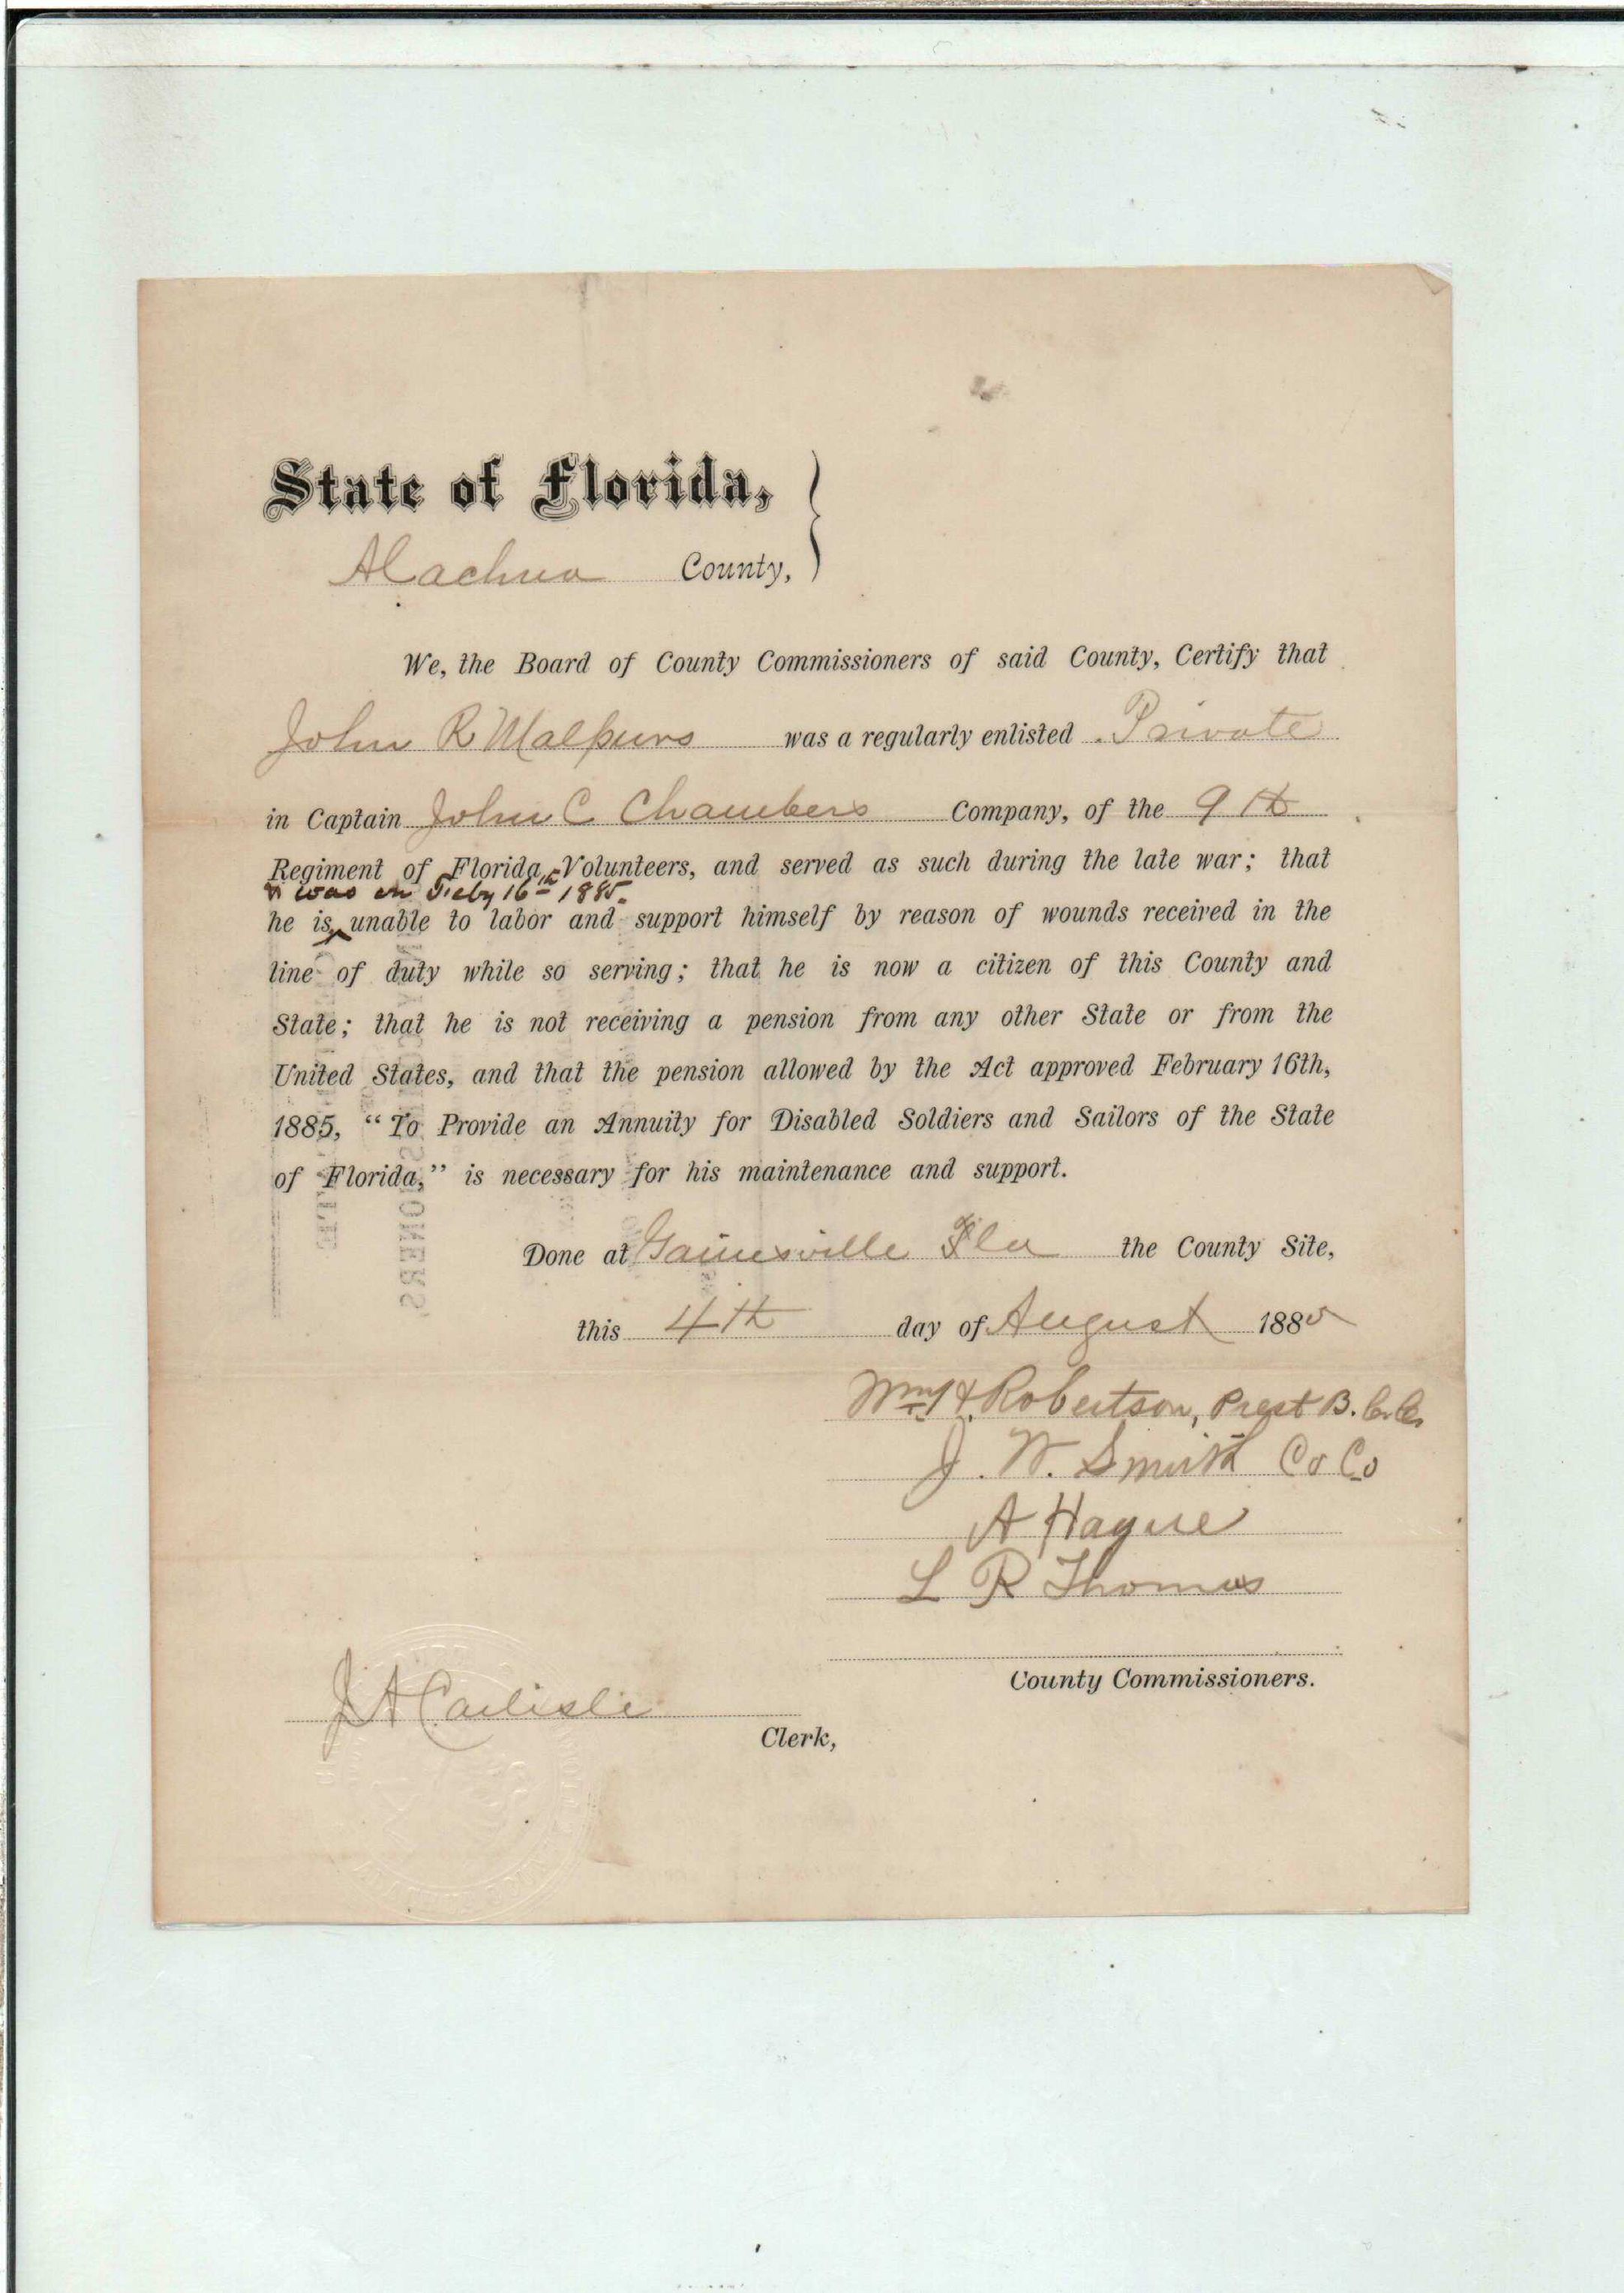 State of Florida,
Alachua County,
We, the Board of County Commissioners of said County, Certify that
John R Malpurs was a regularly enlisted Private
in Captain John C Chambers Company, of the 9th
Regiment of Florida Volunteers, and served as such during the late war; that
& was on Feby 16th 1885.
he is unable to labor and support himself by reason of wounds received in the
line of duty while so serving; that he is now a citizen of this County and
State; that he is not receiving a pension from any other State or from the
United States, and that the pension allowed by the Act approved February 16th,
1885, "To Provide an Annuity for Disabled Soldiers and Sailors of the State
of Florida," is necessary for his maintenance and support.
Done at Gainesville Fla the County Site,
this 4th day of August 1885
Wm H. Robertson, Prest B. C. C.
J. W. Smith Co Co
A Hague
L R Thomas
County Commissioners.
J A Carlisle
Clerk,